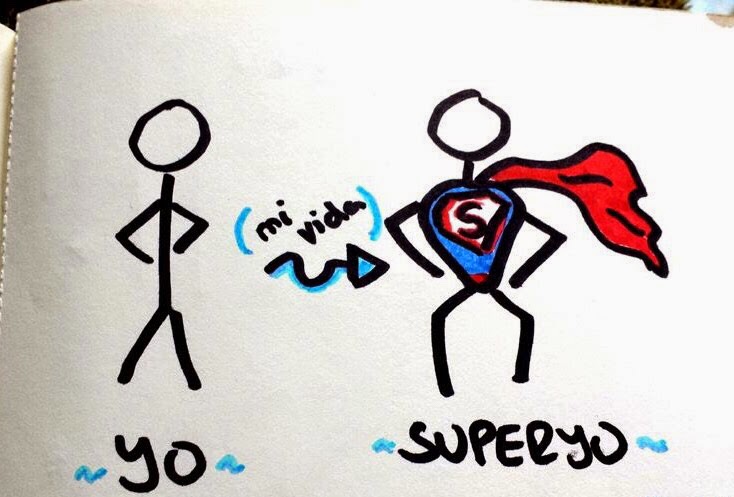 (mi
vida)
S
~YO~
~SUPERYO~